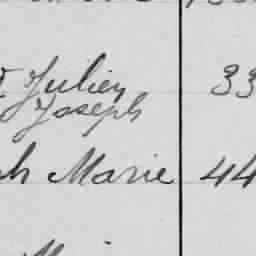 Julien 33
Joseph
h Marie 44